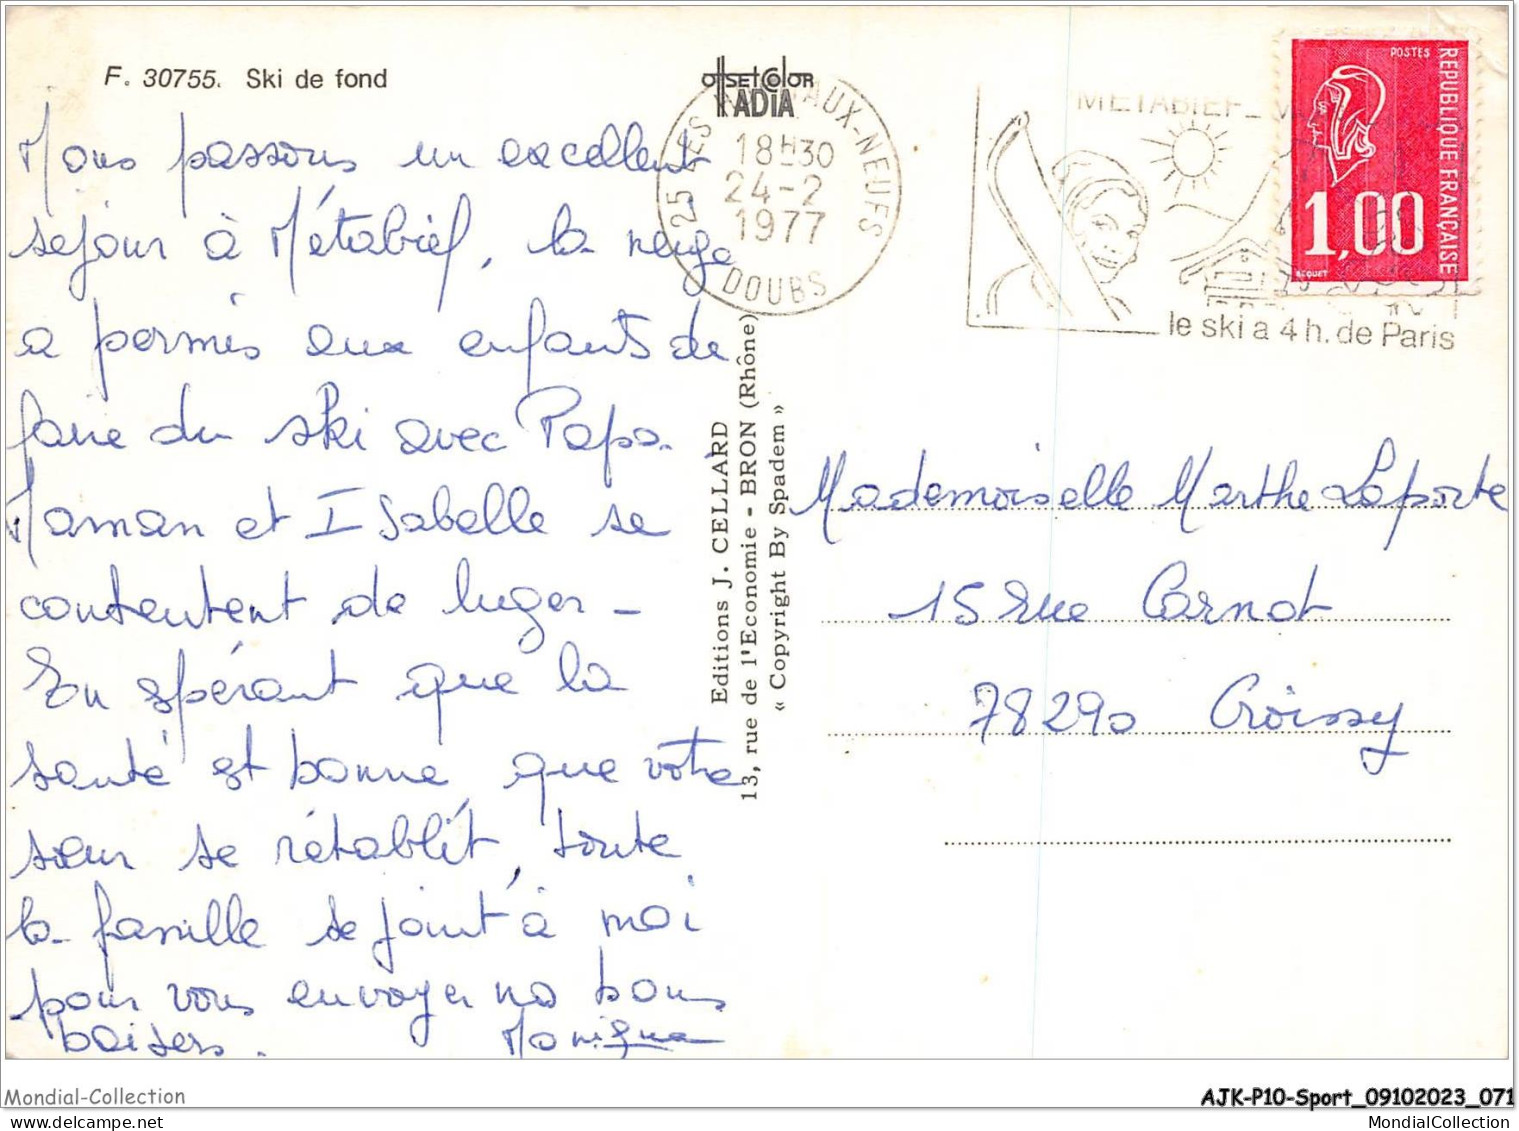 F. 30755. Ski de fond
offset color
RADIA
Nous passons un excellent
sejour à Métabief, la neige
a permis aux enfants de
faire du ski avec Papa.
Maman et Isabelle se
contentent de luger -
En espérant que la
santé est bonne, que votre
sœur se rétablît, toute
la famille se joint à moi
pour vous envoyer nos bons
baisers. Monique
Editions J. CELLARD
13, rue de l'Economie - BRON (Rhône)
« Copyright By Spadem »
25 LES AUX-NEUFS
18H30
24-2
1977
DOUBS
METABIEF_
le ski a 4h. de Paris
POSTES
REPUBLIQUE FRANÇAISE
1,00
BEQUET
Mademoiselle Marthe Laporte
15 rue Carnot
78290 Croissy
Mondial-Collection
AJK-P10-Sport_09102023_071
MondialCollection